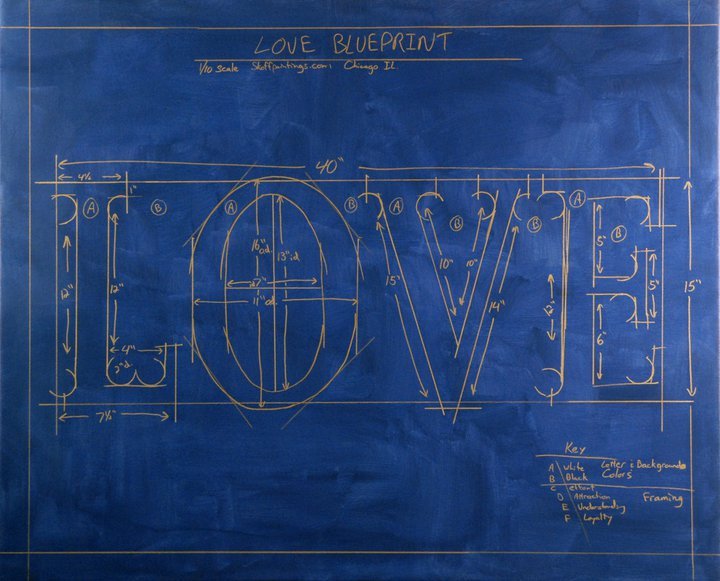 LOVE BLUEPRINT
1/10 Scale Skoffpaintings.com Chicago IL
40"
4½
1"
A B A B A B B A B
16" o.d. 13" i.d
5"
12" 12" 15" 10" 10" 14" 12" 5" 15"
11" o.d.
4" 6"
2" d.
7½"
Key
A White Letter & Background
B Black Colors
C effort
D Attraction Framing
E Understanding
F Loyalty